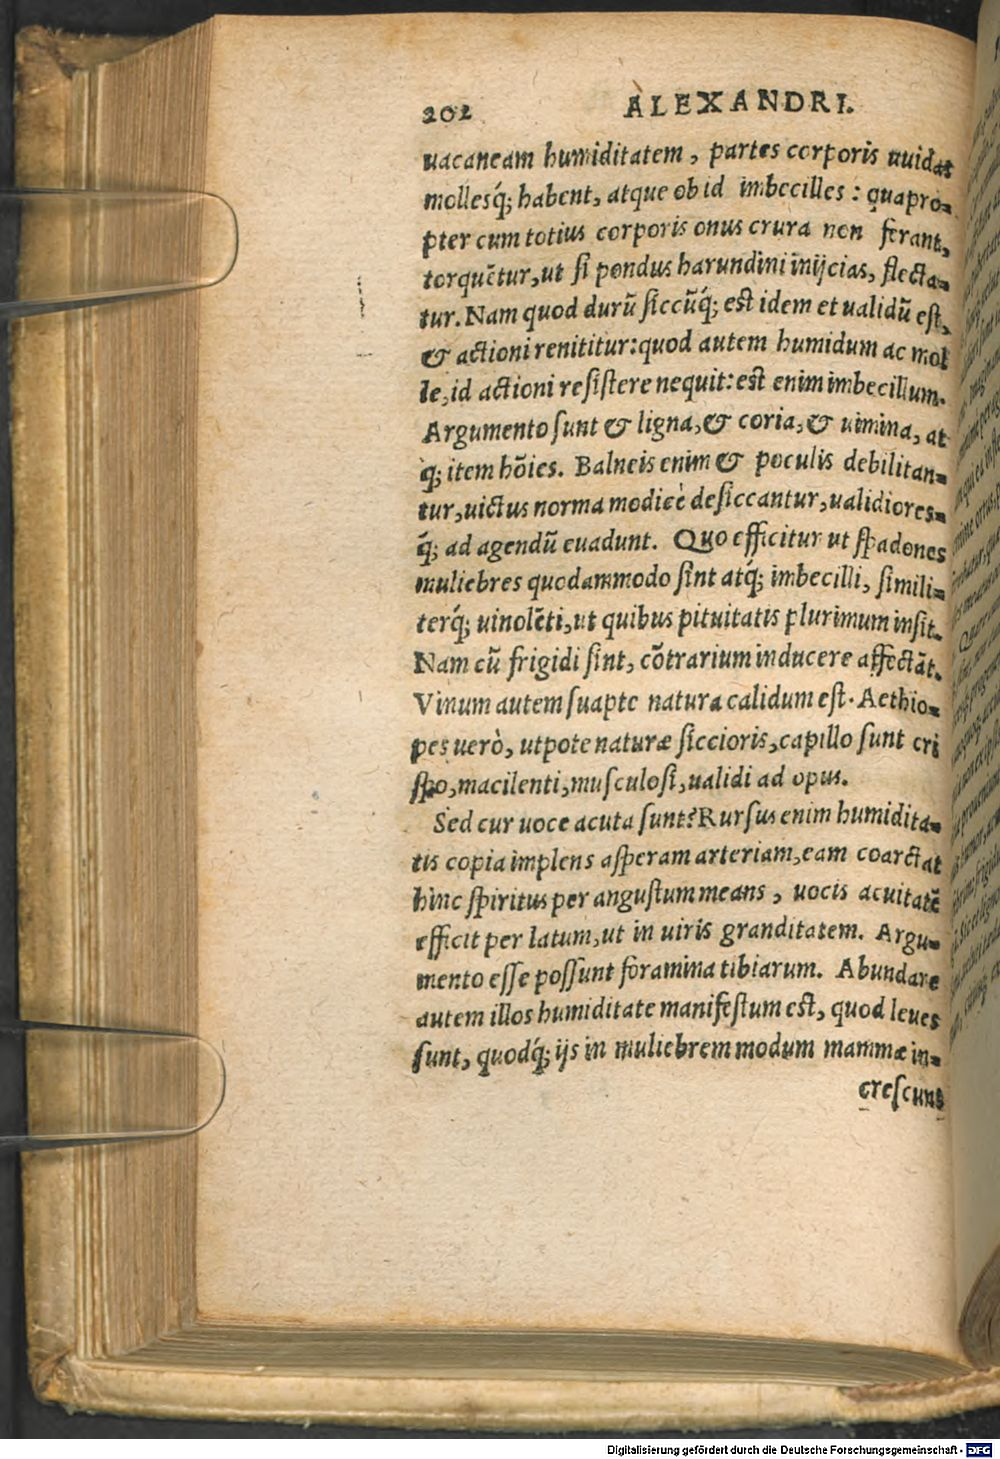 202 ALEXANDRI.
uacaneam humiditatem, partes corporis uuidas
mollesq́; habent, atque ob id imbecilles: quapro-
pter cum totius corporis onus crura non ferant,
torquētur, ut si pondus harundini inijcias, flecta-
tur. Nam quod durū siccūq́; est idem et ualidū est,
& actioni renititur: quod autem humidum ac mol
le, id actioni resistere nequit: est enim imbecillum.
Argumento sunt & ligna, & coria, & uimina, at
q́; item hōies. Balneis enim & poculis debilitan-
tur, uictus norma modicè desiccantur, ualidiores-
q́; ad agendū euadunt. Quo efficitur ut spadones
muliebres quodammodo sint atq́; imbecilli, simili-
terq́; uinolēti, ut quibus pituitatis plurimum insit.
Nam cū frigidi sint, cōtrarium inducere affectāt.
Vinum autem suapte natura calidum est. Aethio-
pes uerò, utpote naturæ siccioris, capillo sunt cri
spo, macilenti, musculosi, ualidi ad opus.
Sed cur uoce acuta sunt? Rursus enim humidita-
tis copia implens asperam arteriam, eam coarctat
hinc spiritus per angustum means, uocis acuitatē
efficit per latum, ut in uiris granditatem. Argu-
mento esse possunt foramina tibiarum. Abundare
autem illos humiditate manifestum est, quod leues
sunt, quodq́; ijs in muliebrem modum mammæ in-
crescunt
Digitalisierung gefördert durch die Deutsche Forschungsgemeinschaft - DFG